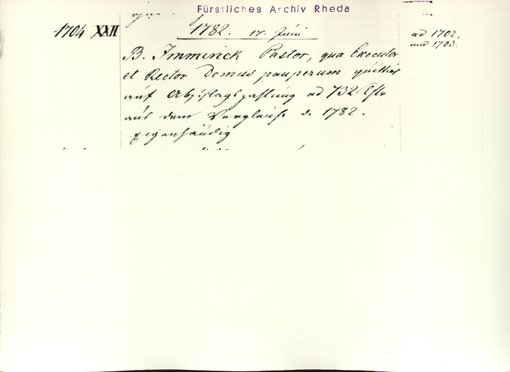 Fürstliches Archiv Rheda
1704 XXII
1782. 17. Juni
ad 1702.
und 1703.
B. Imminck Pastor, qua Executor
et Rector Domus pauperum quittirt
auf Abschlagszahlung ad 732
aus dem Vergleiche d. 1782.
eigenhändig